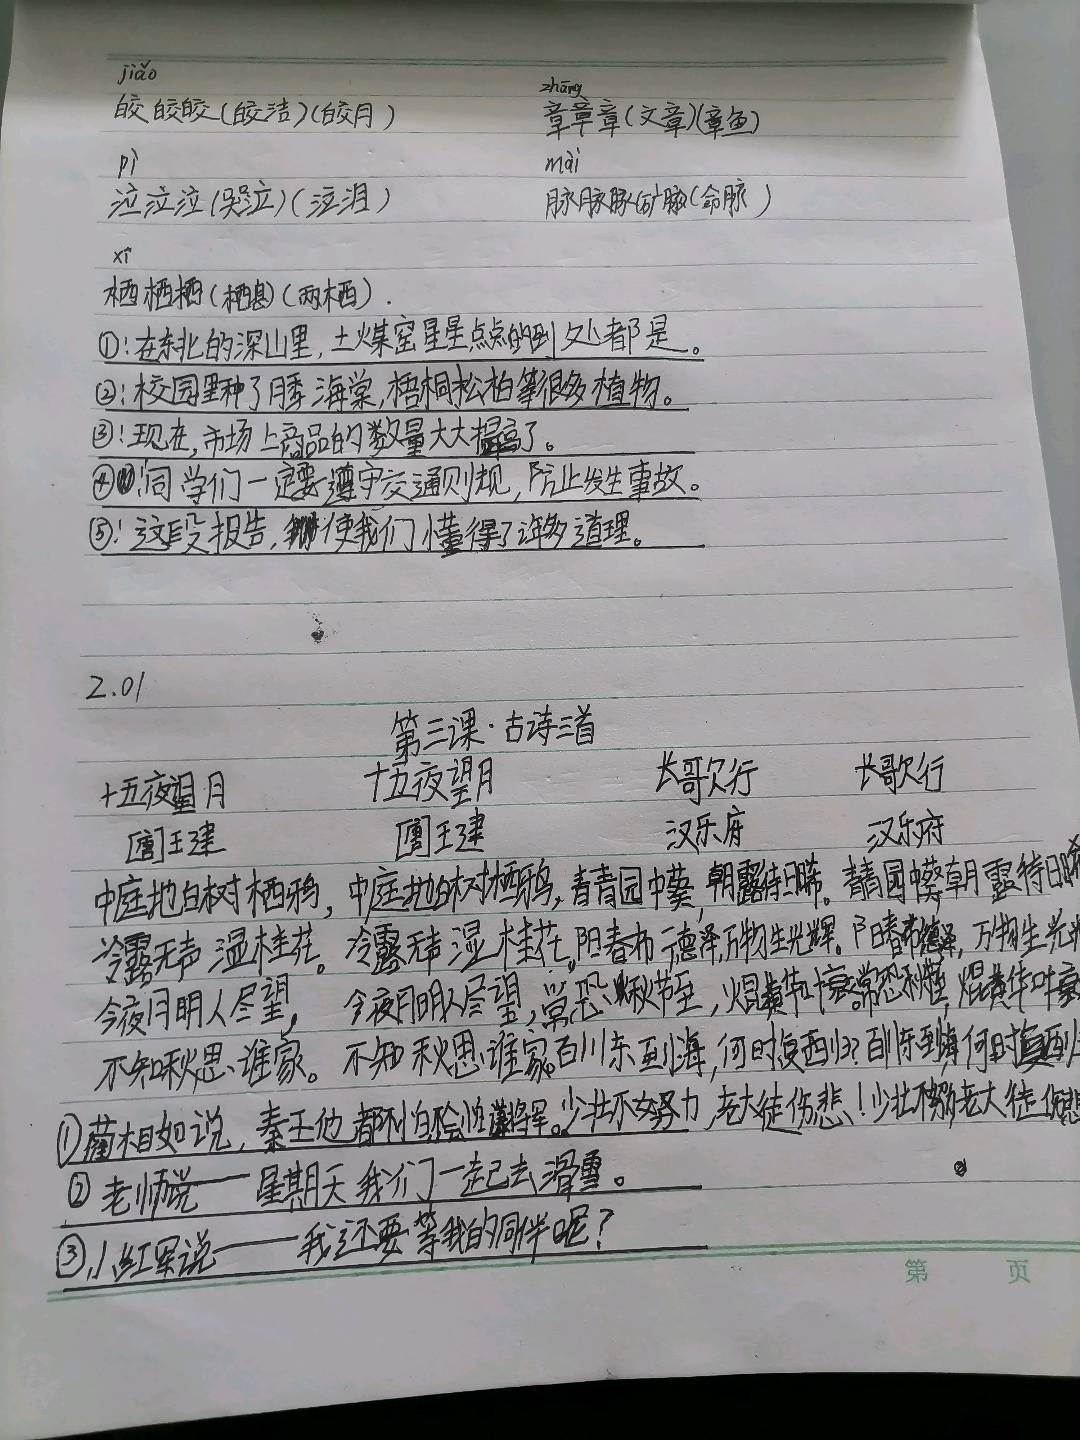 jiǎo zhāng
皎皎皎(皎洁)(皎月) 章章章(文章)(章鱼)
pì mài
泣泣泣(哭泣)(泣泪) 脉脉脉(矿脉)(命脉)
xī
栖栖栖(栖息)(两栖).
①:在东北的深山里,土煤窑星星点点的到处都是。
②:校园里种了月季海棠,梧桐松柏等很多植物。
③:现在,市场上商品的数量大大提高了。
④:同学们一定要遵守交通则规,防止发生事故。
⑤:这段报告,使我们懂得了许多道理。
2.01
第三课·古诗三首
十五夜望月 十五夜望月 长歌欠行 长歌欠行
[唐]王建 [唐]王建 汉乐府 汉乐府
中庭地白树栖鸦,中庭地白树栖鸦,青青园中葵,朝露待日晞。青青园中葵朝露待日晞
冷露无声湿桂花。冷露无声湿桂花。阳春布德泽,万物生光辉。阳春布德泽,万物生光
今夜月明人尽望,今夜月明人尽望,常恐秋节至,焜黄华叶衰。常恐秋节至,焜黄华叶衰
不知秋思谁家。不知秋思谁家。百川东到海,何时复西归?百川东到海,何时复西归
①蔺相如说,秦王他都不怕,会怕廉将军。少壮不努力,老大徒伤悲!少壮不努力老大徒伤悲
②老师说——星期天我们一起去滑雪。
③小红军说——我还要等我的同伴呢?
第 页